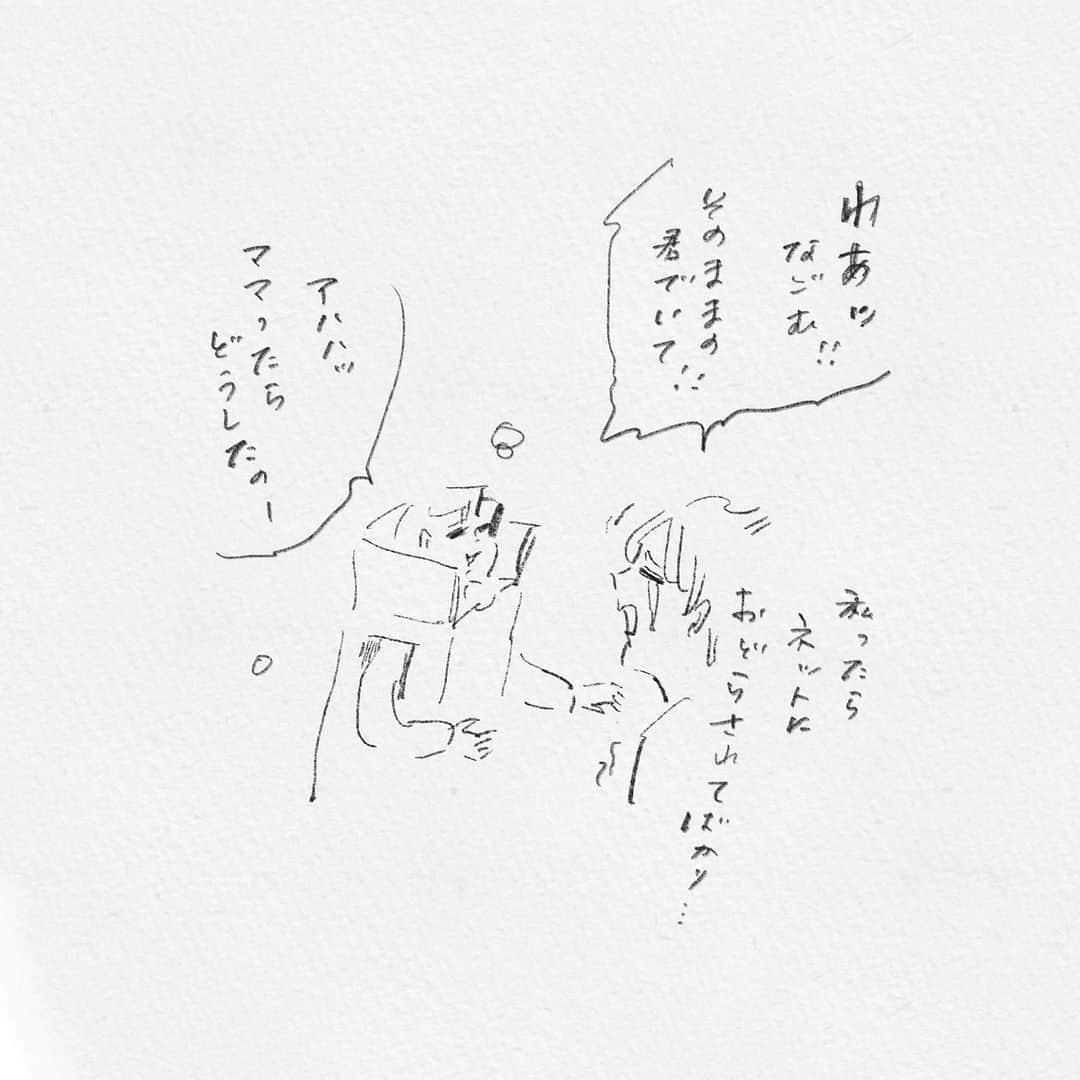 わあッ
なごむ!!
そのままの
君でいて!!
アハハッ
ママったら
どうしたのー
私ったら
ネットに
おどらされて
ばかり…